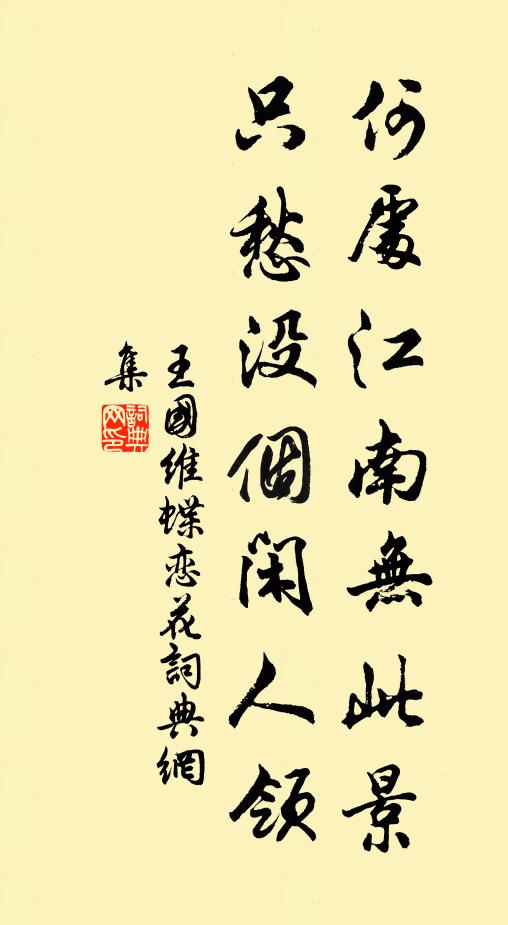 何處江南無此景
只愁没個閑人領
王國維蝶恋花詞典網
集
詞典网印